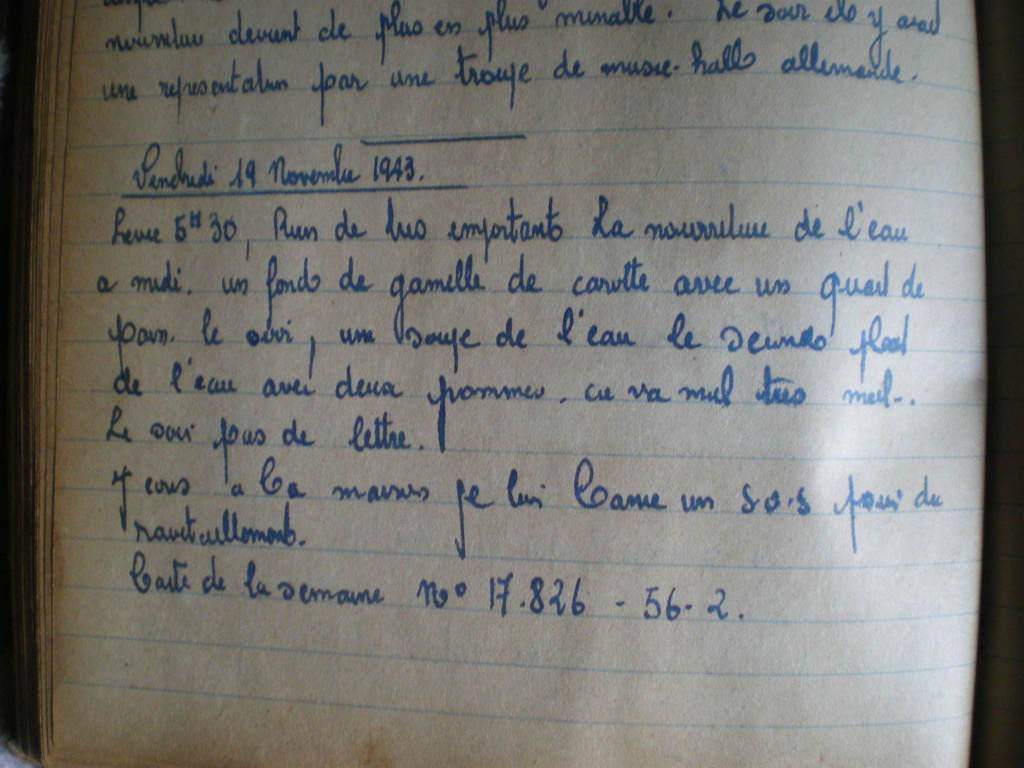 nourriture devient de plus en plus minable. Le soir ils y avait
une representation par une troupe de music-halls allemande.
Vendredi 19 Novembre 1943.
Levée 5H30, Rien de tres emportants La nourriture de l'eau
a midi. un fond de gamelle de carotte avec un quart de
pain. le soir, une soupe de l'eau le second plat
de l'eau avec deux pommes. ça va mal très mal-.
Le soir pas de lettre.
a la maison je lui lance un S.O.S pour du
ravitaillements.
Carte de la semaine No 17.826 - 56-2.